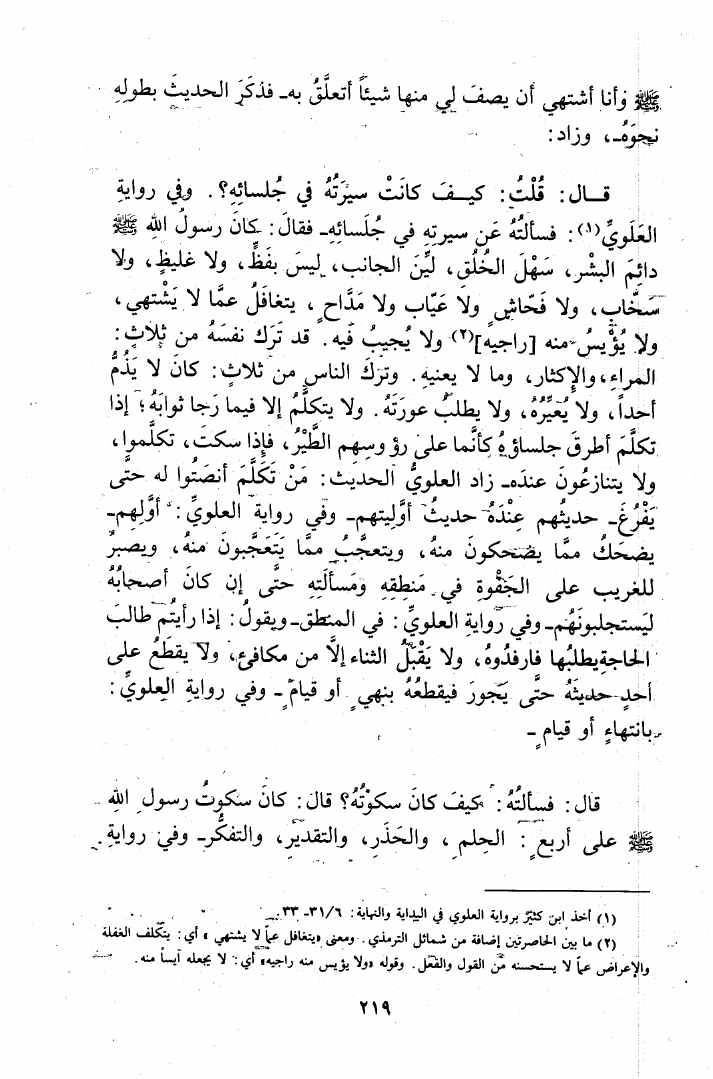 ﷺ وأنا أشتهي أن يصفَ لي منها شيئاً أتعلَّقُ به ـ فذكَرَ الحديثَ بطولِهِ
نحوَهُ ـ، وزاد:
قــال: قُلْتُ: كيــفَ كانَتْ سيرَتُهُ في جُلسائِهِ؟. وفي روايةِ
العَلَويِّ(١): فسألتُهُ عَن سيرتِهِ في جُلَسائِهِ ـ فقالَ: كانَ رسولُ الله ﷺ
دائِمَ البشْر، سَهْلَ الخُلُق، ليِّنَ الجانب، ليسَ بفَظٍّ، ولا غليظٍ، ولا
سَخَّابٍ، ولا فَحّاشٍ ولا عَيّاب ولا مَدَّاحٍ، يتغافَلُ عمَّا لا يَشْتهي،
ولا يُؤْيِسُ منه [راجيه](٢) ولا يُجيبُ فيه. قد تَرَك نفسَهُ من ثلاثٍ:
المراءِ، والإكثار، وما لا يعنيهِ. وتركَ الناس من ثلاثٍ: كانَ لا يَذُمُّ
أحداً، ولا يُعَيِّرُهُ، ولا يطلبُ عورَتَهُ. ولا يتكلَّمُ إلا فيما رَجا ثوابَهُ؛ إذا
تكلَّمَ أطرقَ جلساؤهُ كأنَّما على رؤوسِهم الطَّيْرُ، فإذا سكتَ، تكلَّموا،
ولا يتنازعُونَ عندَه ـ زاد العلويُّ الحديث: مَنْ تَكلَّم أنصَتُوا له حتَّى
يَفْرُغَ ـ حديثُهم عِنْدَهُ حديثُ أوَّليتهم ـ وفي رواية العلويِّ: أوَّلِهم ـ
يضحَكُ ممَّا يضحكونَ منهُ، ويتعجَّبُ ممَّا يَتَعجَّبون منهُ، ويصبرُ
للغريب على الجَفْوة في مَنطِقِهِ ومَسألَتِهِ حتَّى إن كانَ أصحابُهُ
ليَستجلبونَهُم ـ وفي روايةِ العلويِّ: في المنطق ـ ويقولُ: إذا رأيتُم طالبَ
الحاجةِ يطلبُها فارفدُوهُ، ولا يَقْبَلُ الثناء إلَّا من مكافئ، ولا يقطَعُ على
أحدٍ حديثَهُ حتَّى يَجورَ فيقطعُهُ بنهيٍ أو قيامٍ ـ وفي روايةِ العلويِّ:
بانتهاءٍ أو قيامٍ ـ
قال: فسألتُهُ: كيفَ كانَ سكوتُهُ؟ قال: كانَ سكوتُ رسول الله
ﷺ على أربعٍ: الحِلم، والحَذَرِ، والتقديرِ، والتفكُّر ـ وفي روايةِ
(١) أخذ ابن كثير برواية العلوي في البداية والنهاية: ٣١/٦ ـ ٣٣.
(٢) ما بين الحاصرتين إضافة من شمائل الترمذي. ومعنى «يتغافل عما لا يشتهي» أي: يتكلف الغفلة
والإعراض عما لا يستحسنه من القول والفعل. وقوله «ولا يؤيس منه راجيه» أي: لا يجعله آيساً منه.
٢١٩